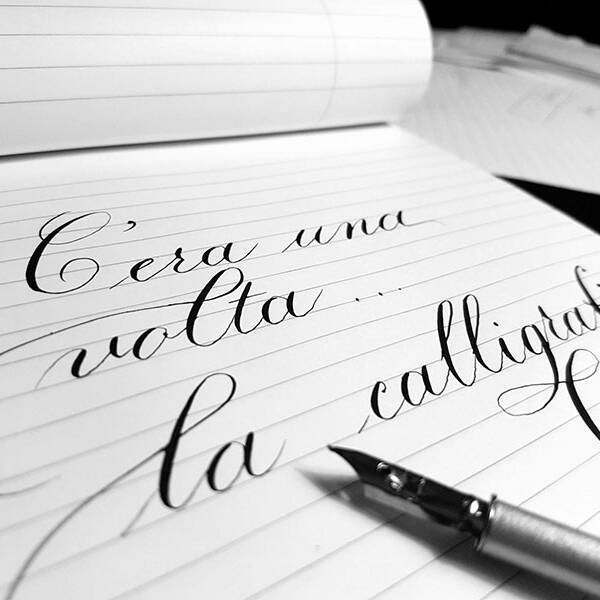 C'era una
volta...
la calligraf